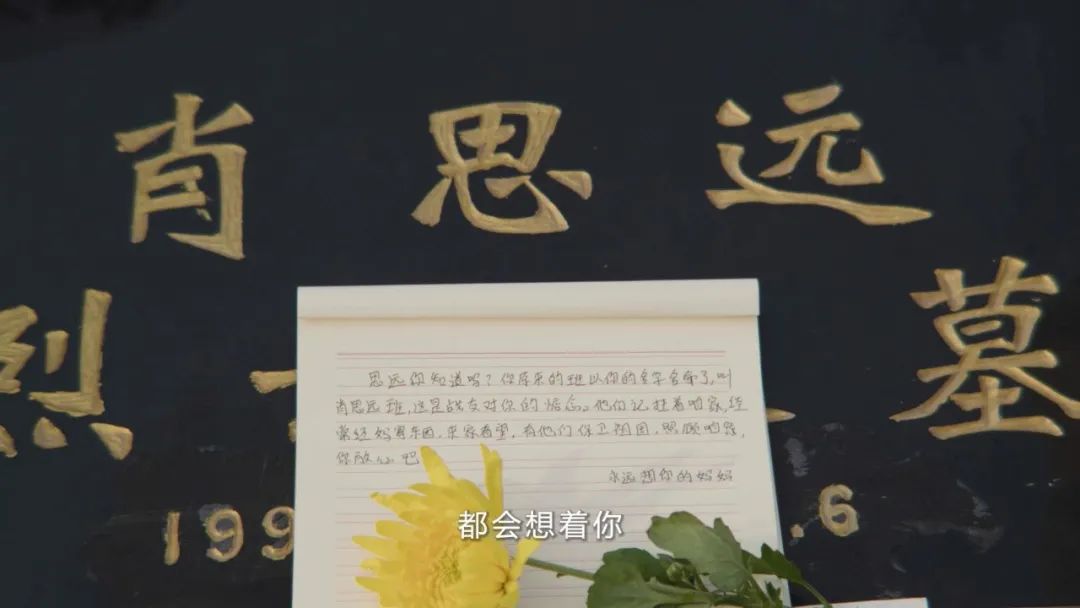 肖思远
烈士
墓
思远你知道吗？你原来的班以你的名字命名了，叫
肖思远班，这是战友对你的悼念。他们记挂着咱家，经
常给妈寄东西，来家看望，有他们保卫祖国，照顾咱家，
你放心吧
永远想你的妈妈
199
.6
都会想着你